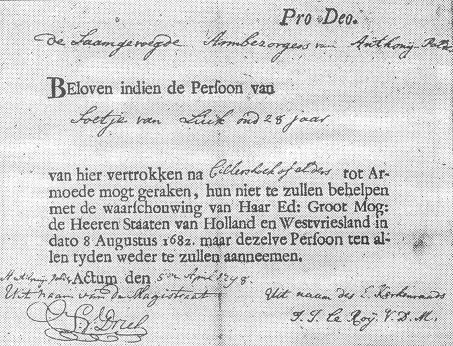 Pro Deo.
De Saamgevoegde Armbezorgers van Anthonij Polder
BEloven indien de Perſoon van
Soetje van Luik oud 28 jaar
van hier vertrokken na elders tot Ar-
moede mogt geraken, hun niet te zullen behelpen
met de waarſchouwing van Haar Ed: Groot Mog:
de Heeren Staaten van Holland en Westvriesland in
dato 8 Augustus 1682. maar dezelve Perſoon ten al-
len tyden weder te zullen aanneemen.
Actum den 5en April
Uit naam van de Magistraat
Uit naam des E. Kerkenraads
J. J. le Roÿ. V. D. M.